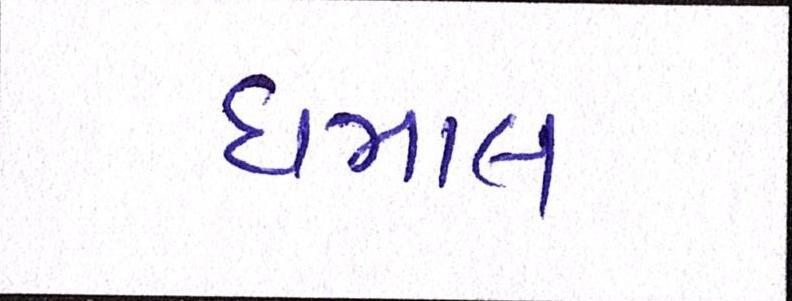 ધમાલ